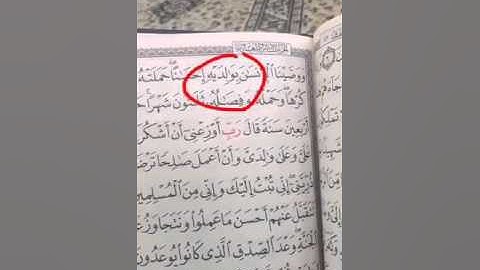 وَوَصَّيْنَا ٱلْإِنسَٰنَ بِوَٰلِدَيْهِ إِحْسَٰنًا حَمَلَتْهُ
كُرْهًا وَحَمْلُهُۥ وَفِصَٰلُهُۥ ثَلَٰثُونَ شَهْرًا
أَرْبَعِينَ سَنَةً قَالَ رَبِّ أَوْزِعْنِىٓ أَنْ أَشْكُرَ
عَلَىَّ وَعَلَىٰ وَٰلِدَىَّ وَأَنْ أَعْمَلَ صَٰلِحًا تَرْضَ
ذُرِّيَّتِىٓ إِنِّى تُبْتُ إِلَيْكَ وَإِنِّى مِنَ ٱلْمُسْلِمِينَ
نَتَقَبَّلُ عَنْهُمْ أَحْسَنَ مَا عَمِلُوا۟ وَنَتَجَاوَزُ عَ
ٱلْجَنَّةِ وَعْدَ ٱلصِّدْقِ ٱلَّذِى كَانُوا۟ يُوعَدُونَ